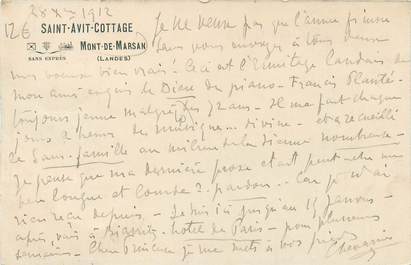 28 Xbre 1912
12€
SAINT-AVIT-COTTAGE
MONT-DE-MARSAN
SANS EXPRÈS
(LANDES)
Je ne veux pas que l'année finisse
sans vous envoyer à tous deux
mes voeux bien vrais! Ceci est l'Ermitage Landais de
mon ami exquis le Dieu du piano - Francis Planté -
toujours jeune malgré ses 72 ans - Il me fait chaque
jour 2 heures de musique... divine - et a recueilli
le Sans-famille au milieu de la sienne nombreuse -
Je pense que ma dernière prose était peut-être un
peu longue et lourde? - pardon - Car je n'ai
rien reçu depuis - Je suis ici jusqu'au 15 janvier -
après, vais à Biarritz - hôtel de Paris - pour plusieurs
semaines - Chère Princesse je me mets à vos pieds